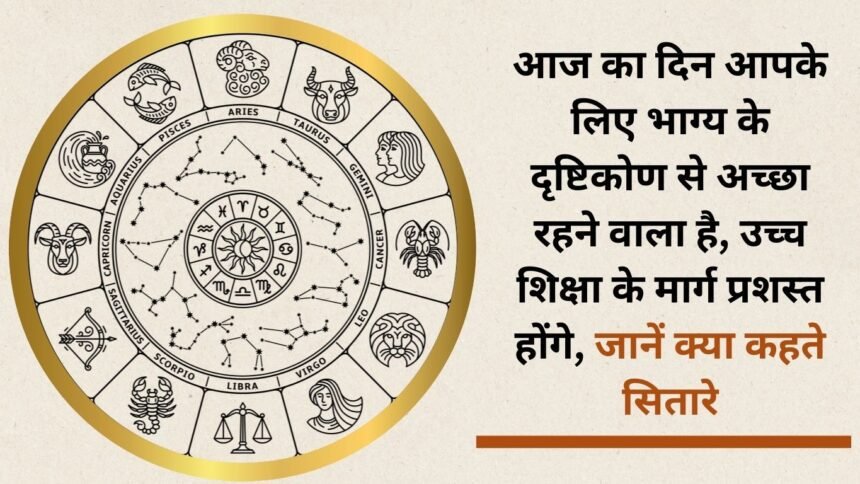 ARIES
TAURUS
GEMINI
CANCER
LEO
VIRGO
LIBRA
SCORPIO
SAGITTARIUS
CAPRICORN
AQUARIUS
PISCES
आज का दिन आपके
लिए भाग्य के
दृष्टिकोण से अच्छा
रहने वाला है, उच्च
शिक्षा के मार्ग प्रशस्त
होंगे, जानें क्या कहते
सितारे